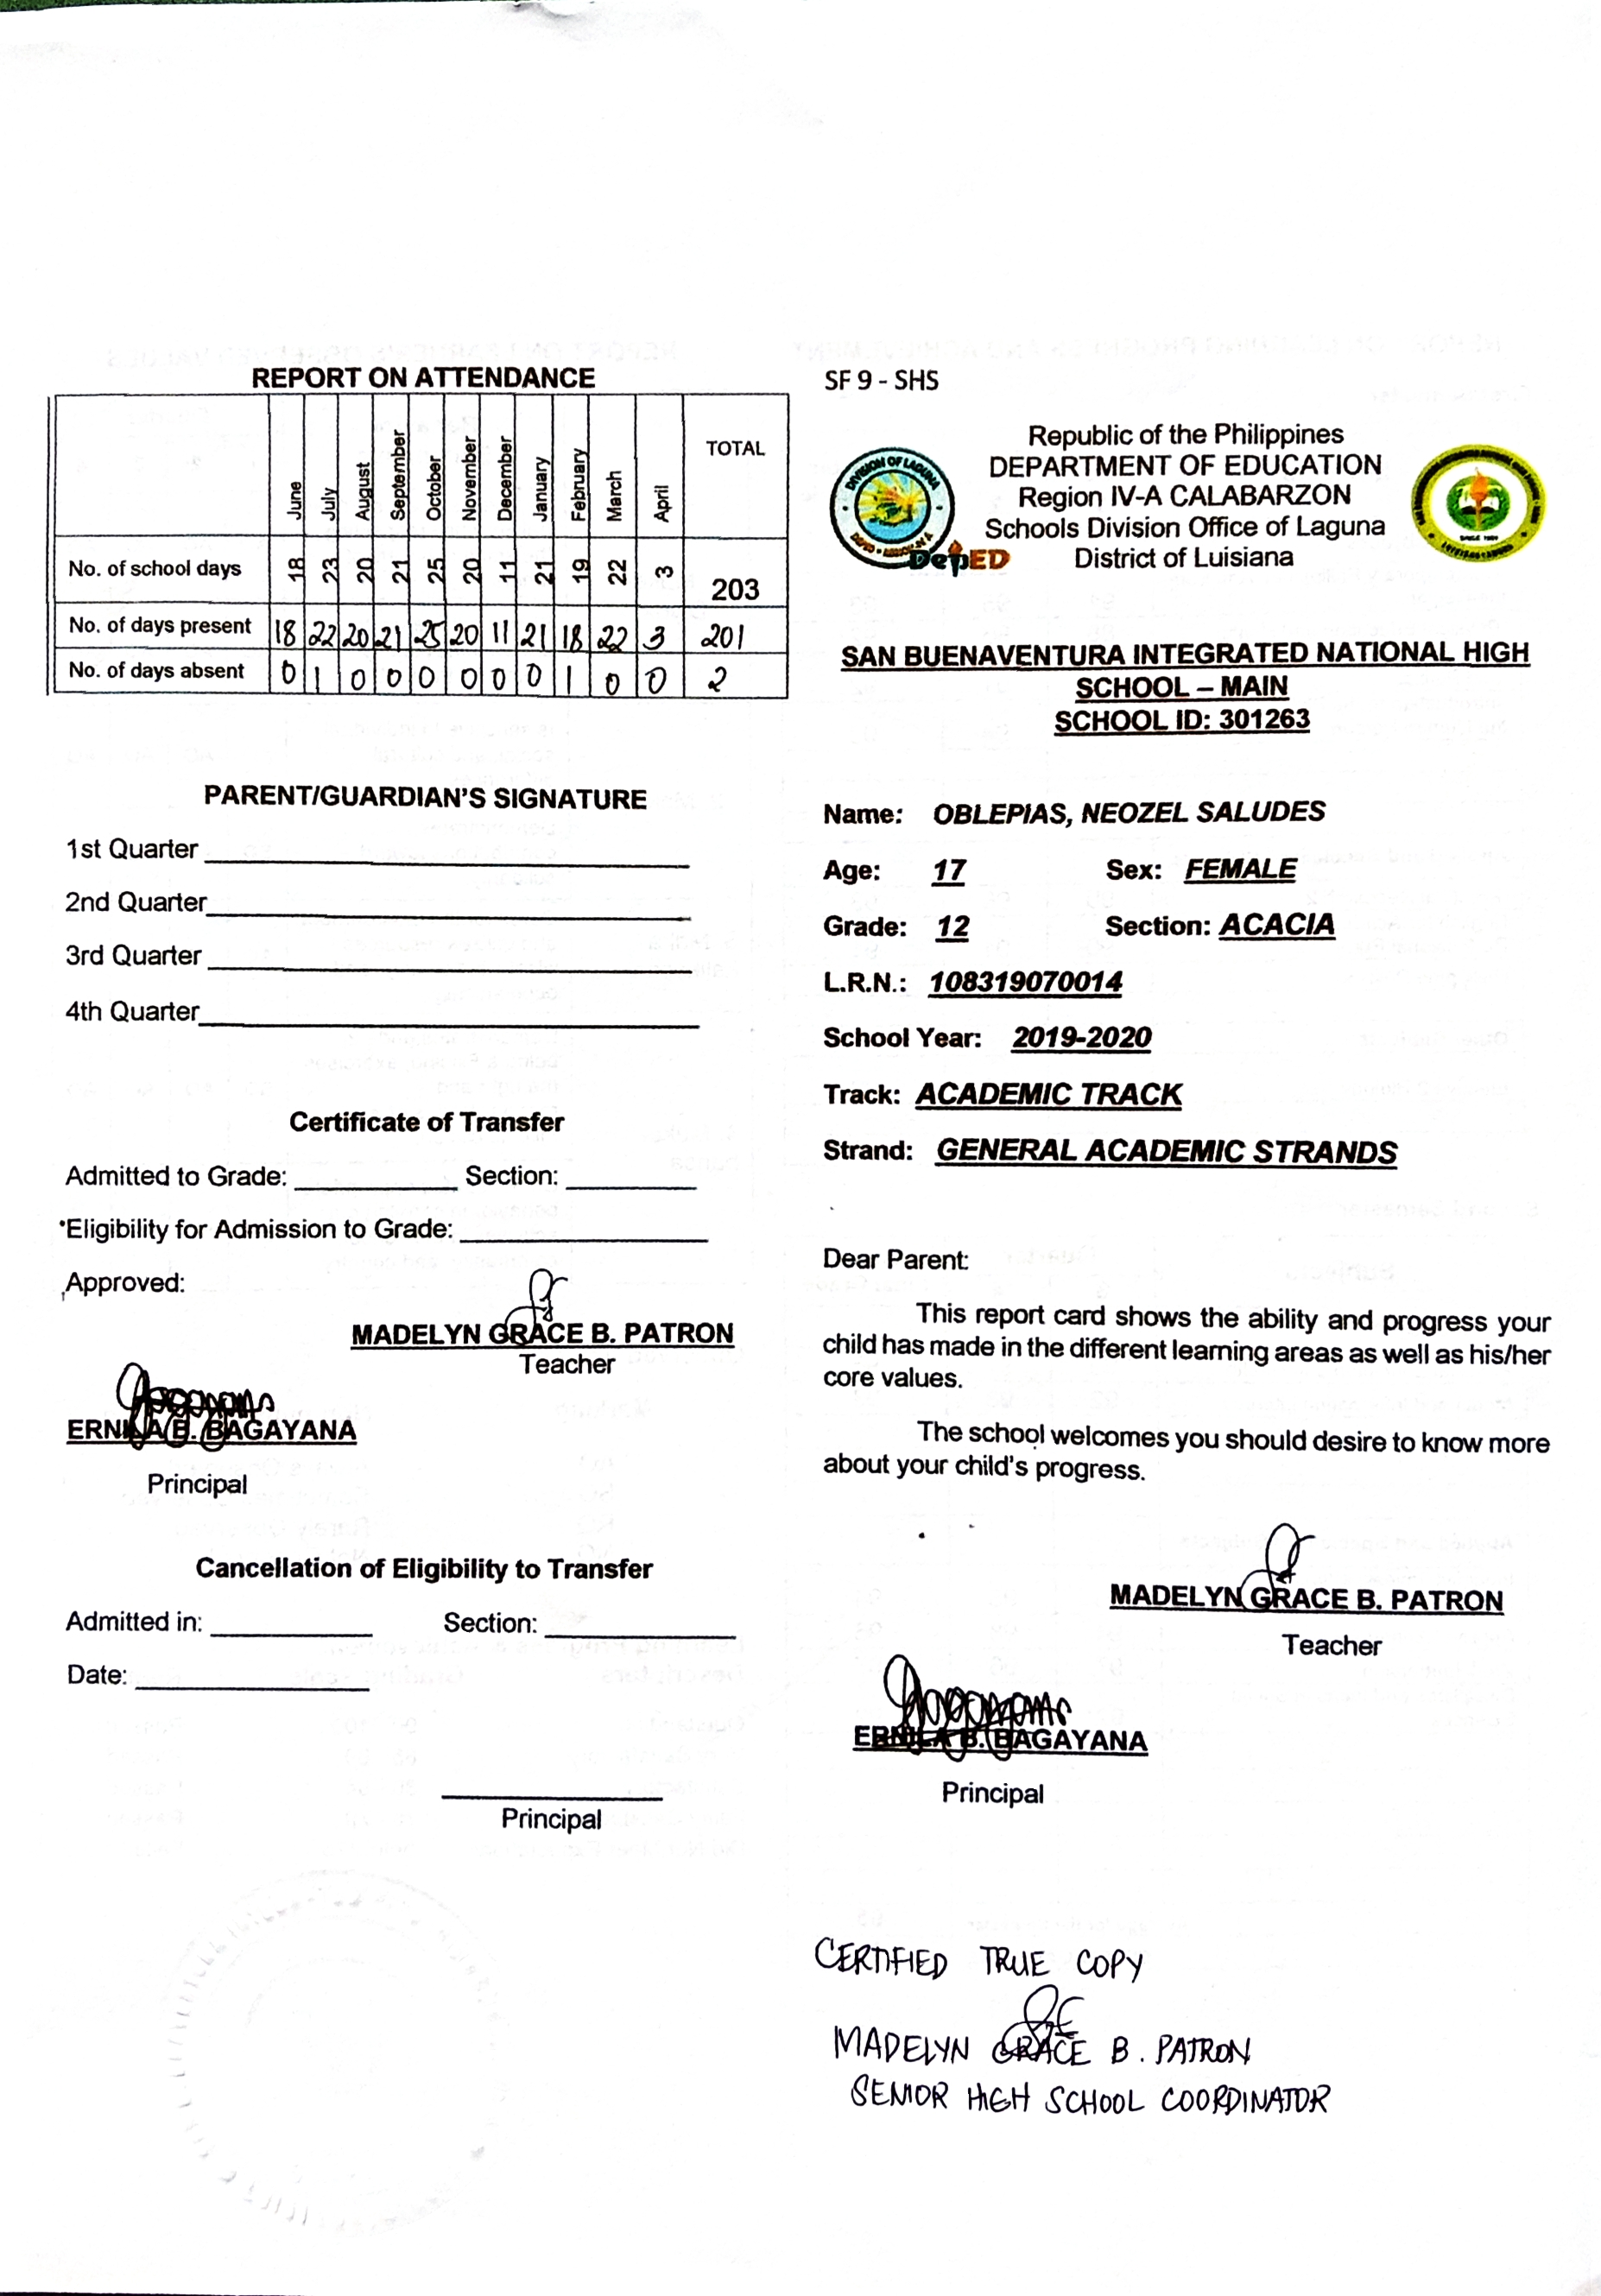 REPORT ON ATTENDANCE
June July August September October November December January February March April TOTAL
No. of school days 18 23 20 21 25 20 11 21 19 22 3 203
No. of days present 18 22 20 21 25 20 11 21 18 22 3 201
No. of days absent 0 1 0 0 0 0 0 0 1 0 0 2
PARENT/GUARDIAN'S SIGNATURE
1st Quarter
2nd Quarter
3rd Quarter
4th Quarter
Certificate of Transfer
Admitted to Grade: Section:
Eligibility for Admission to Grade:
Approved:
MADELYN GRACE B. PATRON
Teacher
ERNILA B. BAGAYANA
Principal
Cancellation of Eligibility to Transfer
Admitted in: Section:
Date:
Principal
SF 9 - SHS
Republic of the Philippines
DEPARTMENT OF EDUCATION
Region IV-A CALABARZON
Schools Division Office of Laguna
District of Luisiana
DIVISION OF LAGUNA
DepED
SAN BUENAVENTURA INTEGRATED NATIONAL HIGH
SCHOOL – MAIN
SCHOOL ID: 301263
Name: OBLEPIAS, NEOZEL SALUDES
Age: 17 Sex: FEMALE
Grade: 12 Section: ACACIA
L.R.N.: 108319070014
School Year: 2019-2020
Track: ACADEMIC TRACK
Strand: GENERAL ACADEMIC STRANDS
Dear Parent:
This report card shows the ability and progress your
child has made in the different learning areas as well as his/her
core values.
The school welcomes you should desire to know more
about your child's progress.
MADELYN GRACE B. PATRON
Teacher
ERNILA B. BAGAYANA
Principal
CERTIFIED TRUE COPY
MADELYN GRACE B. PATRON
SENIOR HIGH SCHOOL COORDINATOR